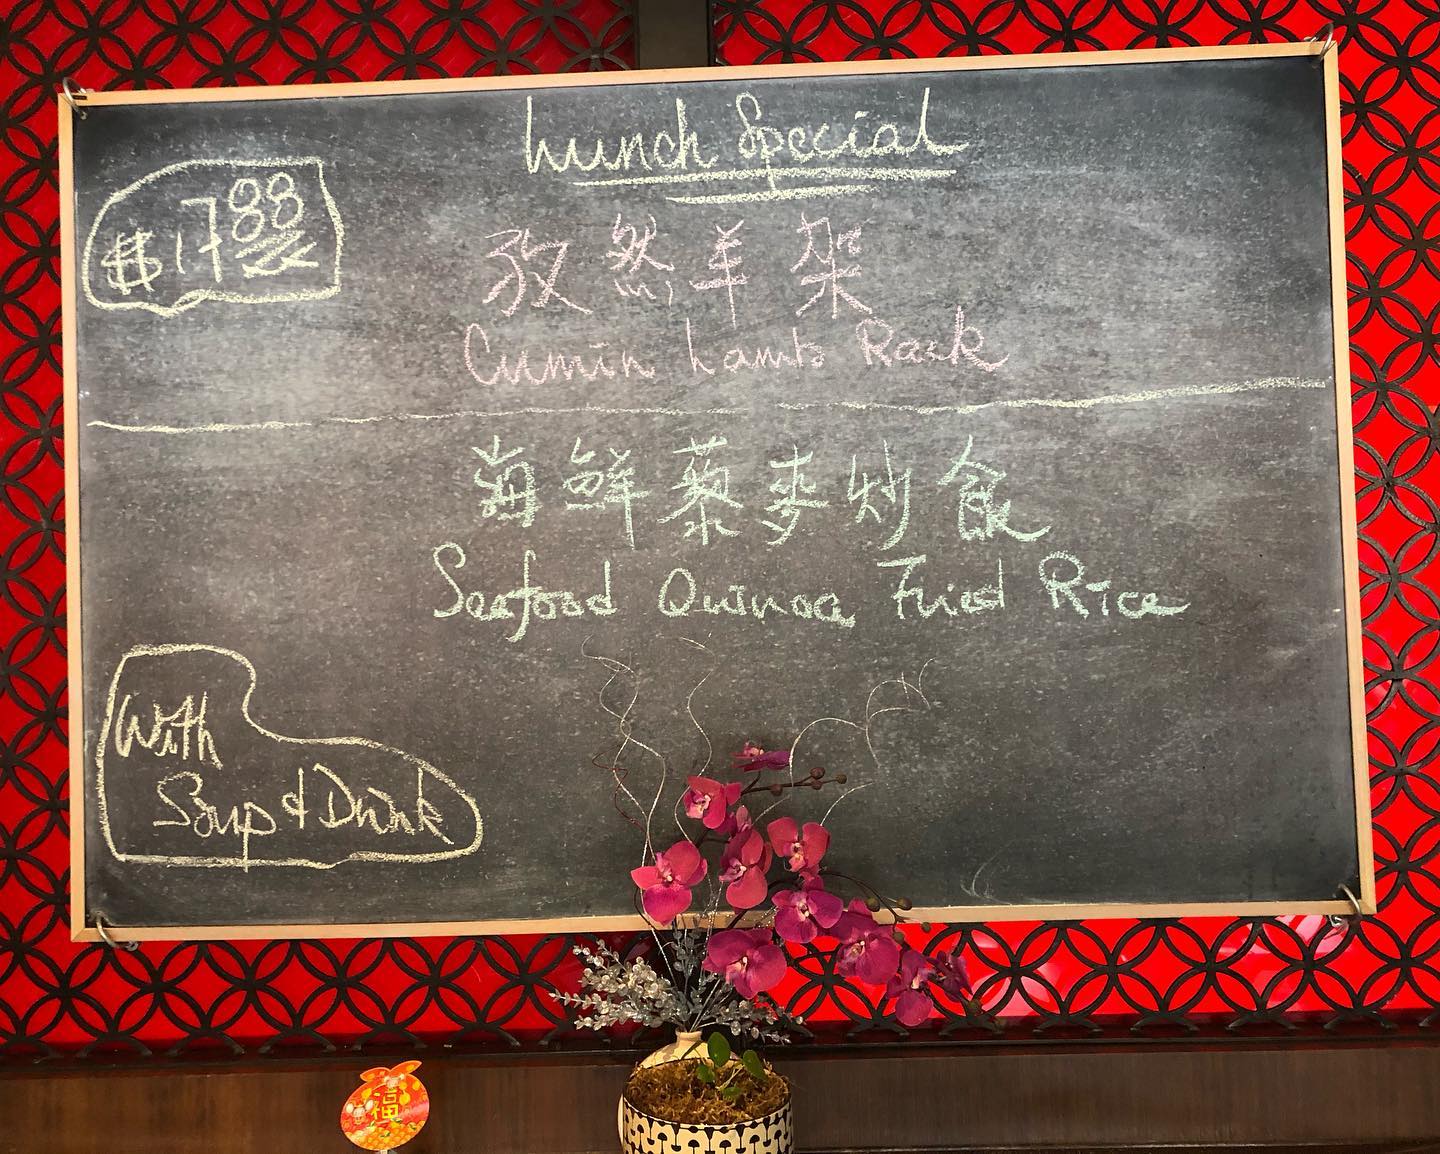 Lunch Special
$17.88
孜然羊架
Cumin Lamb Rack
海鮮藜麥炒飯
Seafood Quinoa Fried Rice
With
Soup & Drink
福